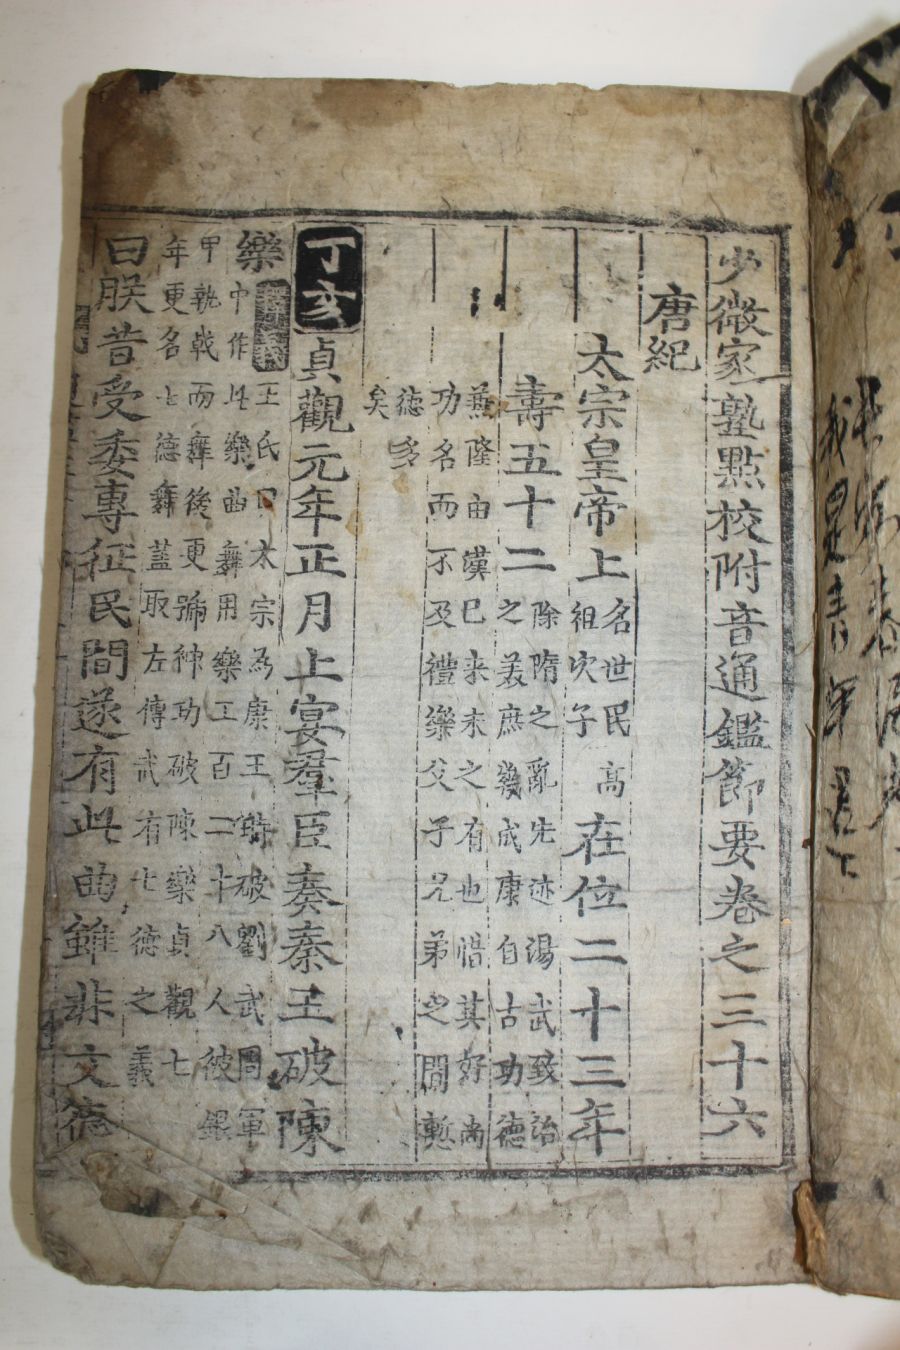 少微家塾點校附音通鑑節要卷之三十六
唐紀
太宗皇帝上
名世民高
祖次子
在位二十三年
壽五十二
除隋之亂先迹湯武致治
之美庶幾成康自古功德
兼隆由漢已来未之有也惜其好尚
功名而不及禮樂父子兄弟之間慙
德多
矣
丁亥
貞觀元年正月上宴羣臣奏秦王破陳
樂
釋義
王氏曰太宗為康王時破劉武周軍
中作此樂曲舞用樂工百二十八人被銀
甲執戟而舞後更號神功破陳樂貞觀七
年更名七德舞蓋取左傳武有七德之義
曰朕昔受委專征民間遂有此曲雖非文德